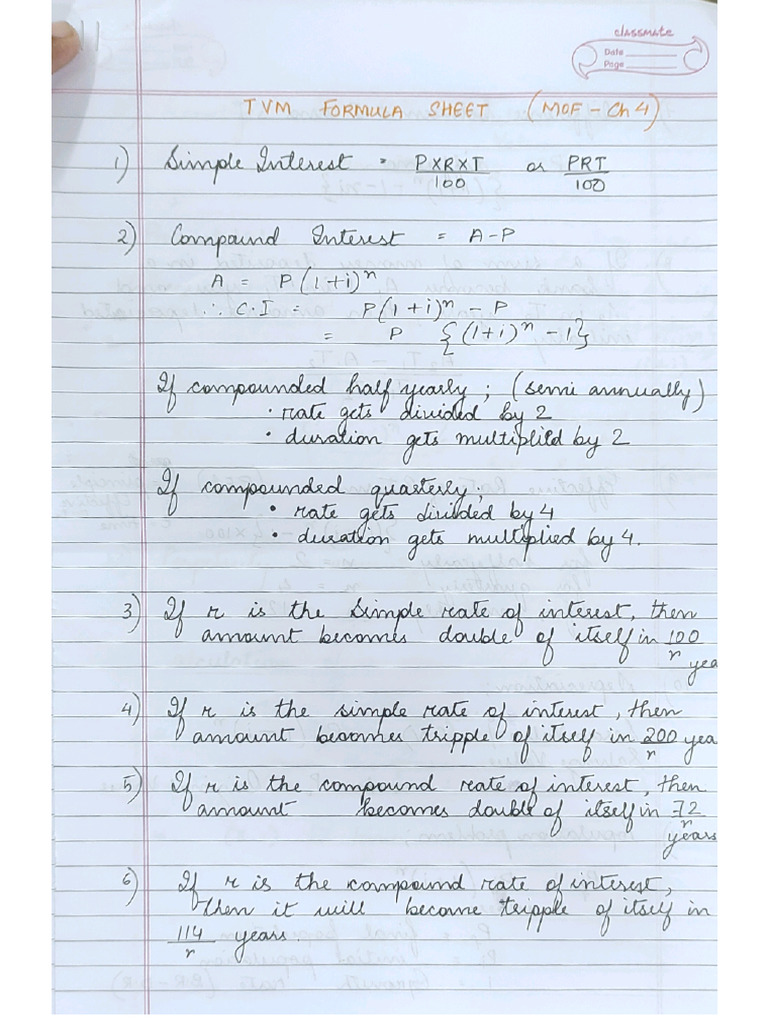 11
classmate
Date
Page
TVM FORMULA SHEET (MOF - Ch 4)
1) Simple Interest = PXRXT/100 or PRT/100
2) Compound Interest = A-P
A = P(1+i)^n
∴ C.I = P(1+i)^n - P
= P {(1+i)^n - 1}
If compounded half yearly; (semi annually)
• rate gets divided by 2
• duration gets multiplied by 2
If compounded quarterly;
• rate gets divided by 4
• duration gets multiplied by 4.
3) If r is the simple rate of interest, then
amount becomes double of itself in 100/r
yea
4) If r is the simple rate of interest, then
amount becomes tripple of itself in 200/r yea
5) If r is the compound rate of interest, then
amount becomes double of itself in 72/r
years
6) If r is the compound rate of interest,
then it will become tripple of itself in
114/r years.